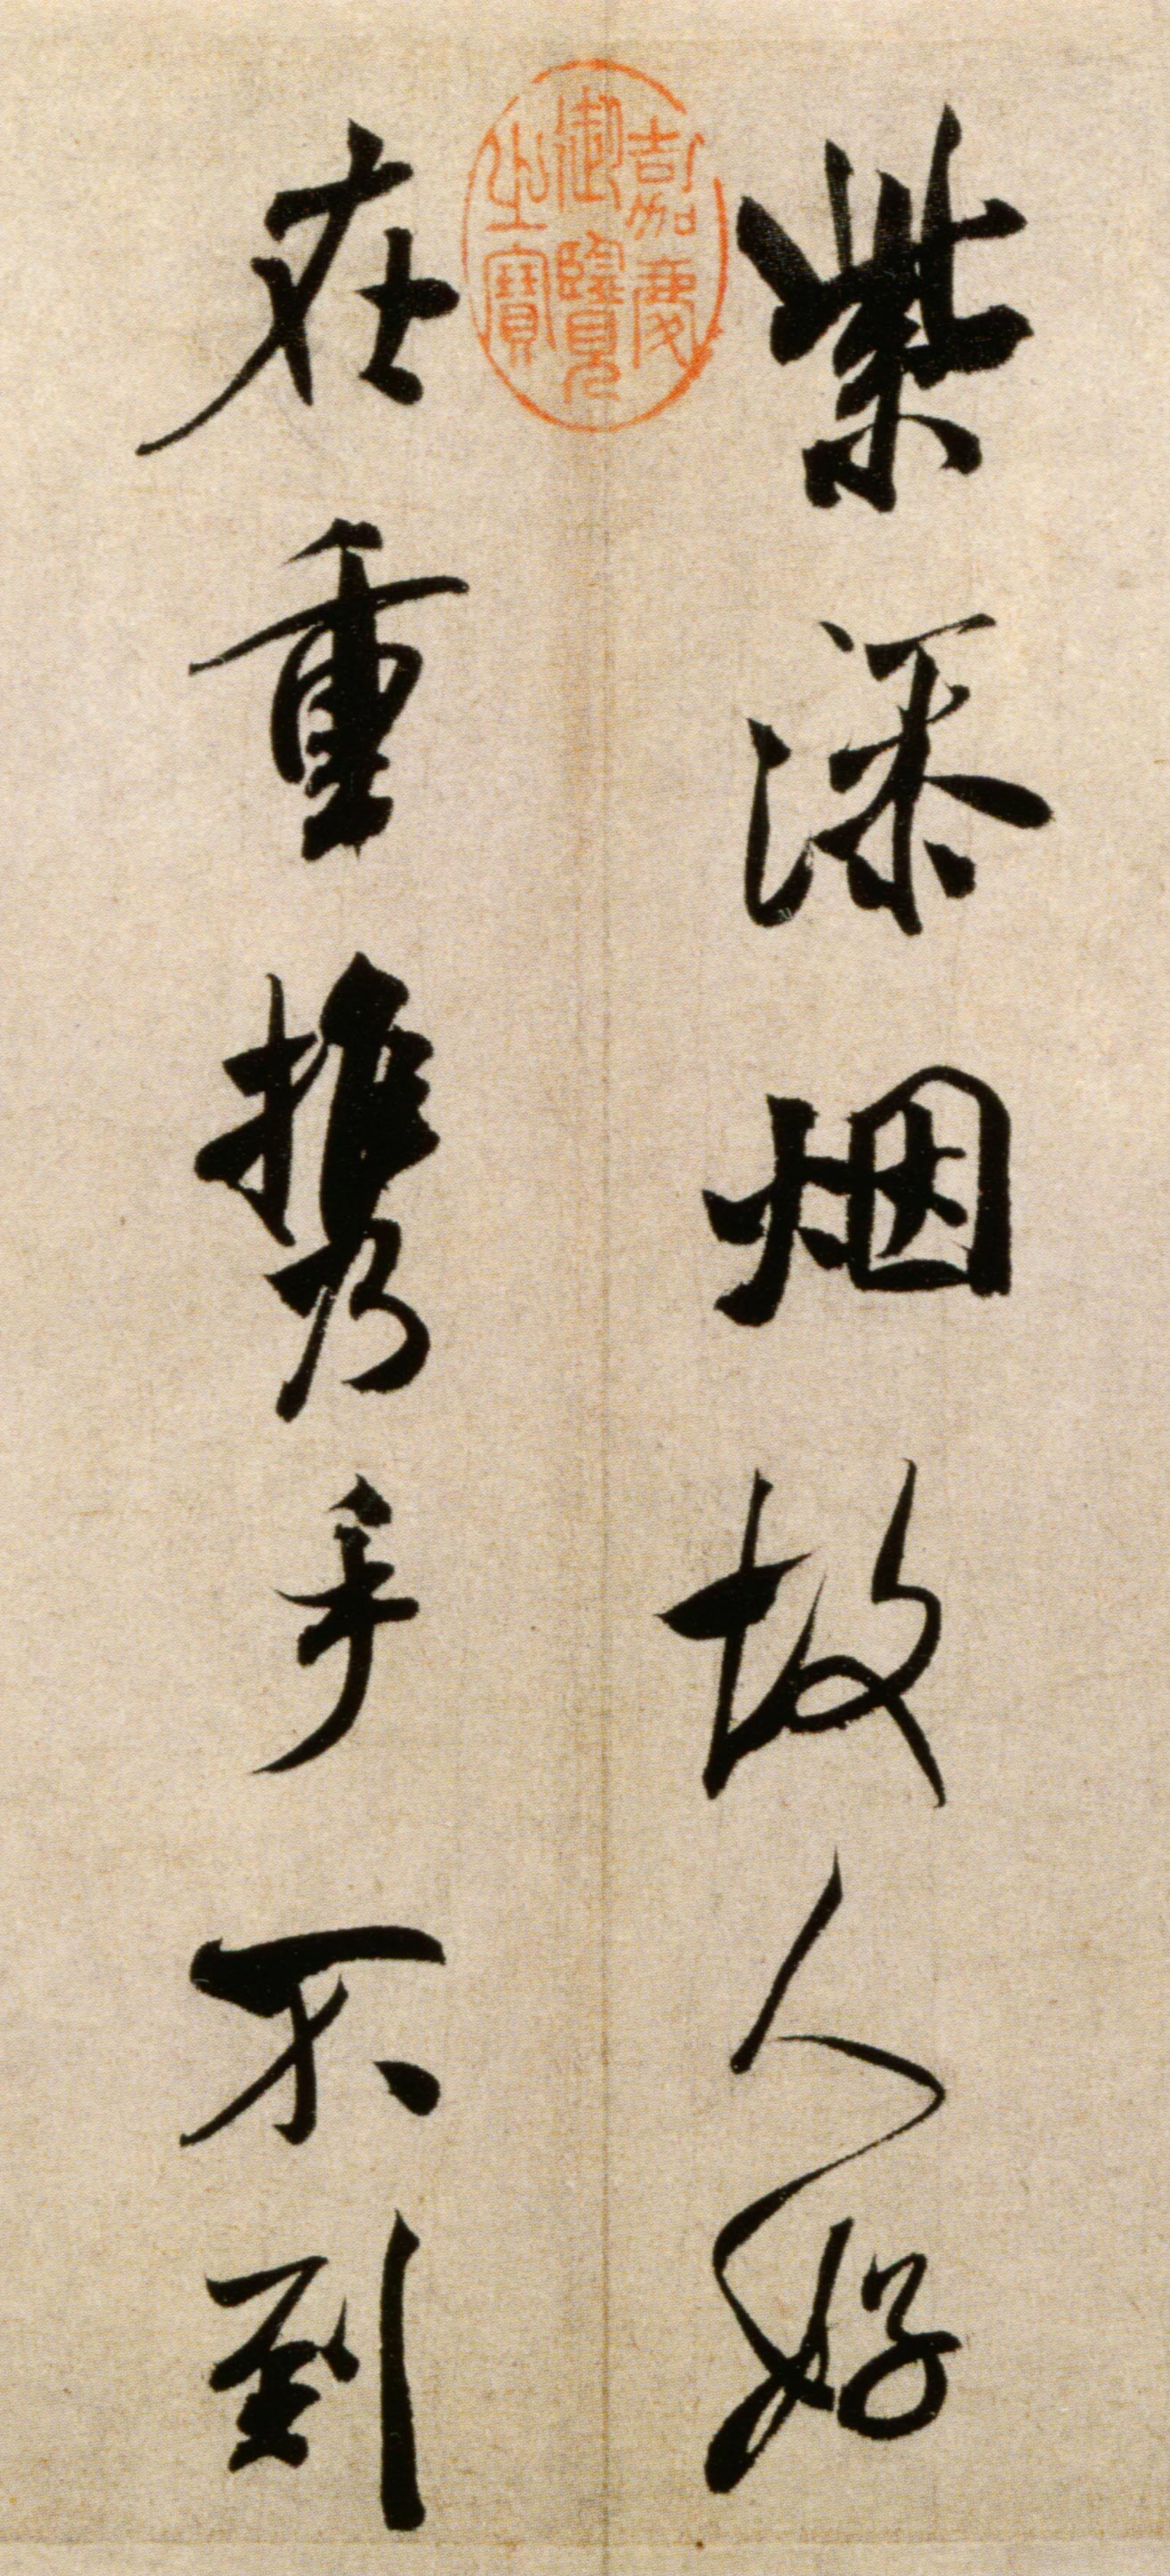 紫添烟故人好
在重攜手不到
嘉慶
御覽
之寶